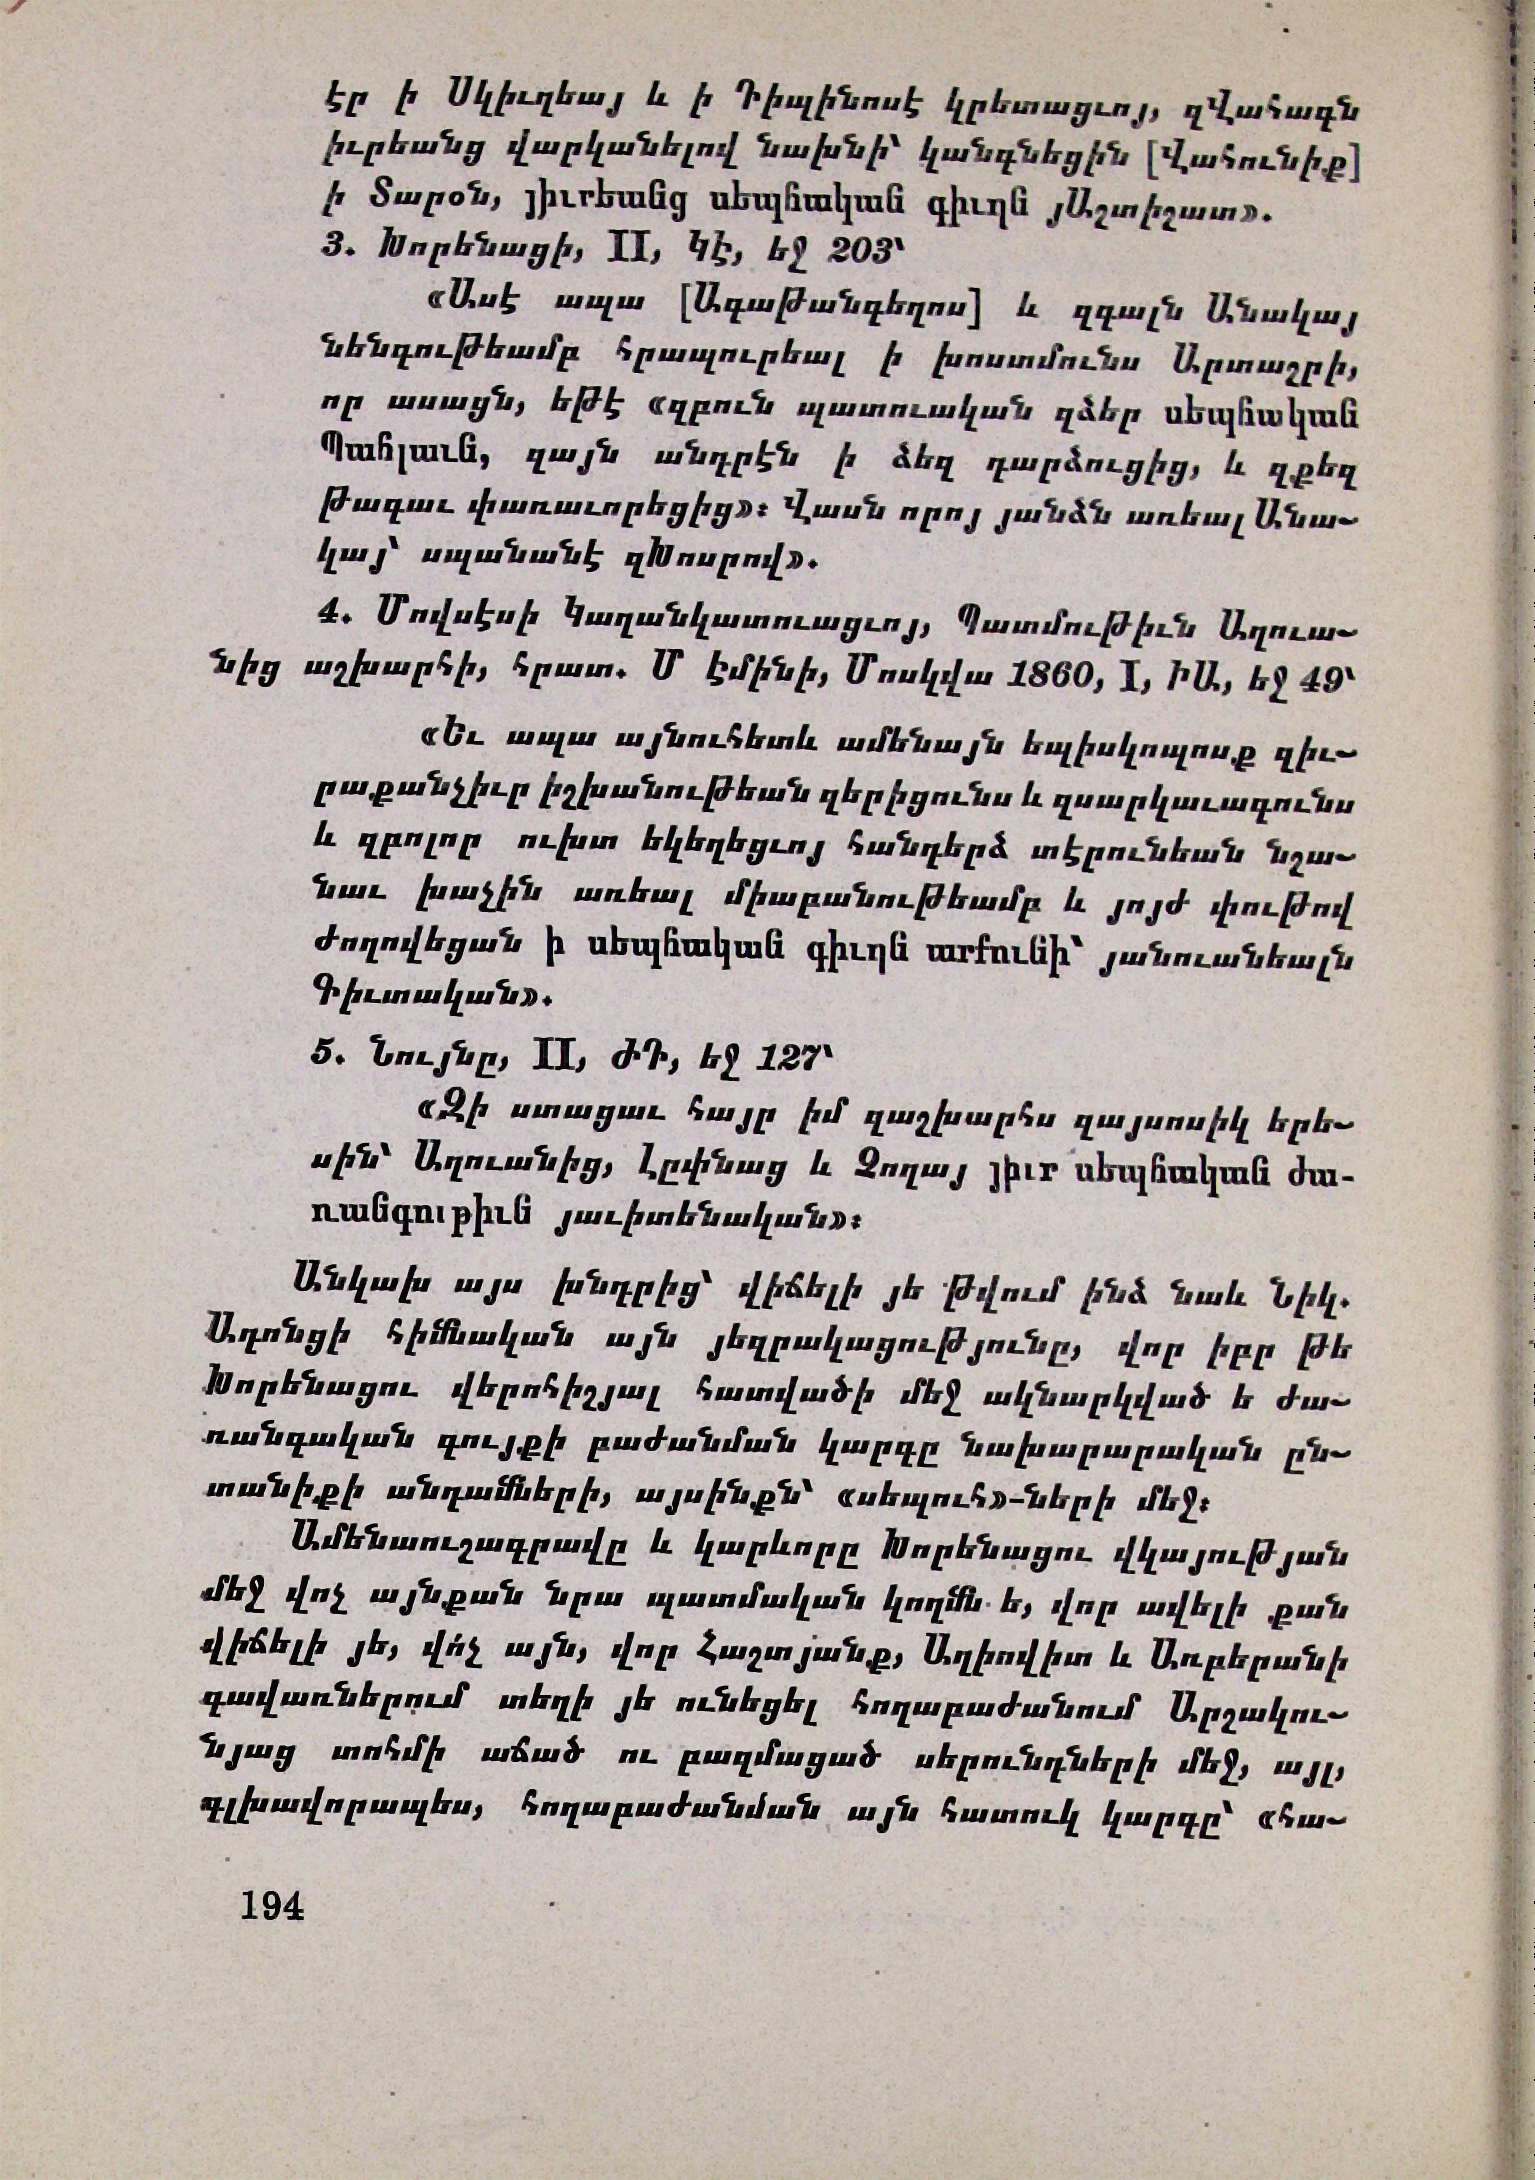 էր ի Սկիւղեայ և ի Դիպինոսէ կրետացւոյ, զՎահագն
իւրեանց վարկանելով նախնի՝ կանգնեցին [Վահունիք]
ի Տարօն, յիւրեանց սեպհական գիւղն յԱշտիշատ».
3. Խորենացի, II, Կէ, եջ 203՝
«Ասէ ապա [Ագաթանգեղոս] և զգալն Անակայ
նենգութեամբ հրապուրեալ ի խոստմունս Արտաշրի,
որ ասացն, եթէ «զբուն պատուական ղձեր սեպհական
Պահլաւն, զայն անդրէն ի ձեզ դարձուցից, և զքեզ
թագաւ փառաւորեցից»։ Վասն որոյ յանձն առեալ Անա-
կայ՝ սպանանէ զԽոսրով».
4. Մովսէսի Կաղանկատուացւոյ, Պատմութիւն Աղուա-
նից աշխարհի, հրատ. Մ Էմինի, Մոսկվա 1860, I, ԻԱ, եջ 49՝
«Եւ ապա այնուհետև ամենայն եպիսկոպոսք զիւ-
րաքանչիւր իշխանութեան զերիցունս և զսարկաւագունս
և զբոլոր ուխտ եկեղեցւոյ հանդերձ տէրունեան նշա-
նաւ խաչին առեալ միաբանութեամբ և յոյժ փութով
ժողովեցան ի սեպհական գիւղն արքունի՝ յանուանեալն
Գիւտական».
5. Նույնը, II, ԺԴ, եջ 127՝
«Զի ստացաւ հայր իմ զաշխարհս զայսոսիկ երե-
սին՝ Աղուանից, Լըփնաց և Չողայ յիւր սեպհական ժա-
ռանգութիւն յաւիտենական»։
Անկախ այս խնդրից՝ վիճելի յե թվում ինձ նաև Նիկ.
Ադոնցի հիմնական այն յեզրակացությունը, վոր իբր թե
Խորենացու վերոհիշյալ հատվածի մեջ ակնարկված ե ժա-
ռանգական գույքի բաժանման կարգը նախարարական ըն-
տանիքի անդամների, այսինքն՝ «սեպուհ»-ների մեջ։
Ամենաուշագրավը և կարևորը Խորենացու վկայության
մեջ վոչ այնքան նրա պատմական կողմն ե, վոր ավելի քան
վիճելի յե, վո՛չ այն, վոր Հաշտյանք, Աղիովիտ և Առբերանի
գավառներում տեղի յե ունեցել հողաբաժանում Արշակու-
նյաց տոհմի աճած ու բազմացած սերունդների մեջ, այլ,
գլխավորապես, հողաբաժանման այն հատուկ կարգը՝ «հա-
194